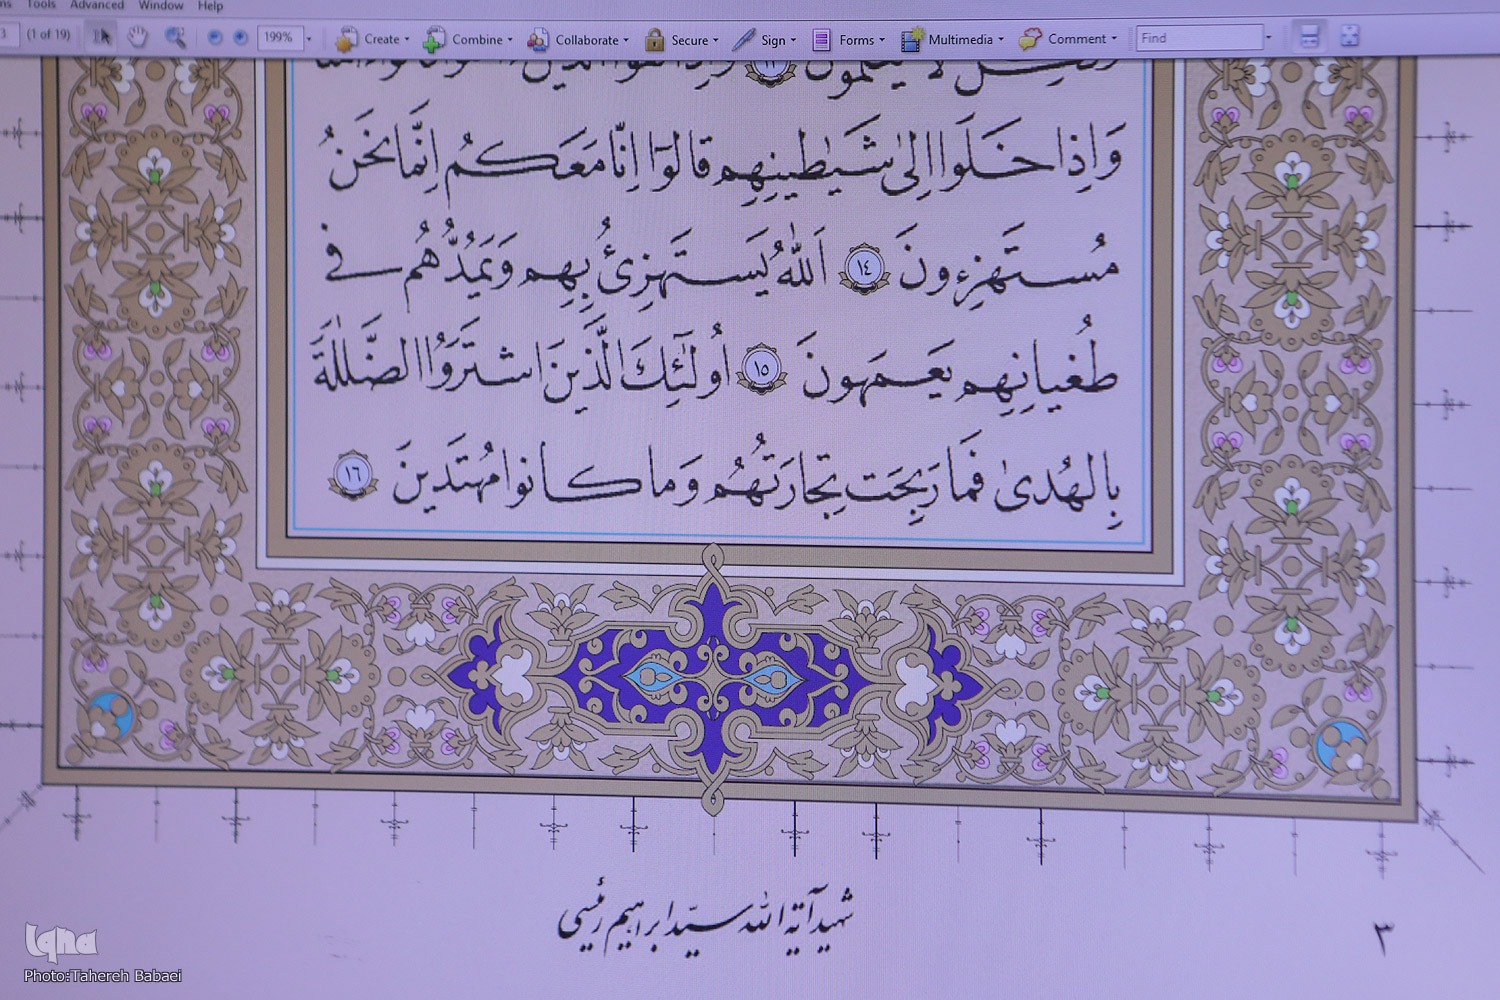 Tools Advanced Window Help
3 (1 of 19) 199% Create Combine Collaborate Secure Sign Forms Multimedia Comment Find
وَاِذا خَلَوا اِلىٰ شَيٰطينِهِم قالوٓا اِنّا مَعَكُم اِنَّما نَحنُ
مُستَهزِءونَ ١٤ اَللّٰهُ يَستَهزِئُ بِهِم وَيَمُدُّهُم في
طُغيانِهِم يَعمَهونَ ١٥ اُولٰٓئِكَ الَّذينَ اشتَرَوُا الضَّلٰلَةَ
بِالهُدىٰ فَما رَبِحَت تِجارَتُهُم وَما كانوا مُهتَدينَ ١٦
شهید آیة الله سیّد ابراهیم رئیسی
٣
Iqna
Photo:Tahereh Babaei